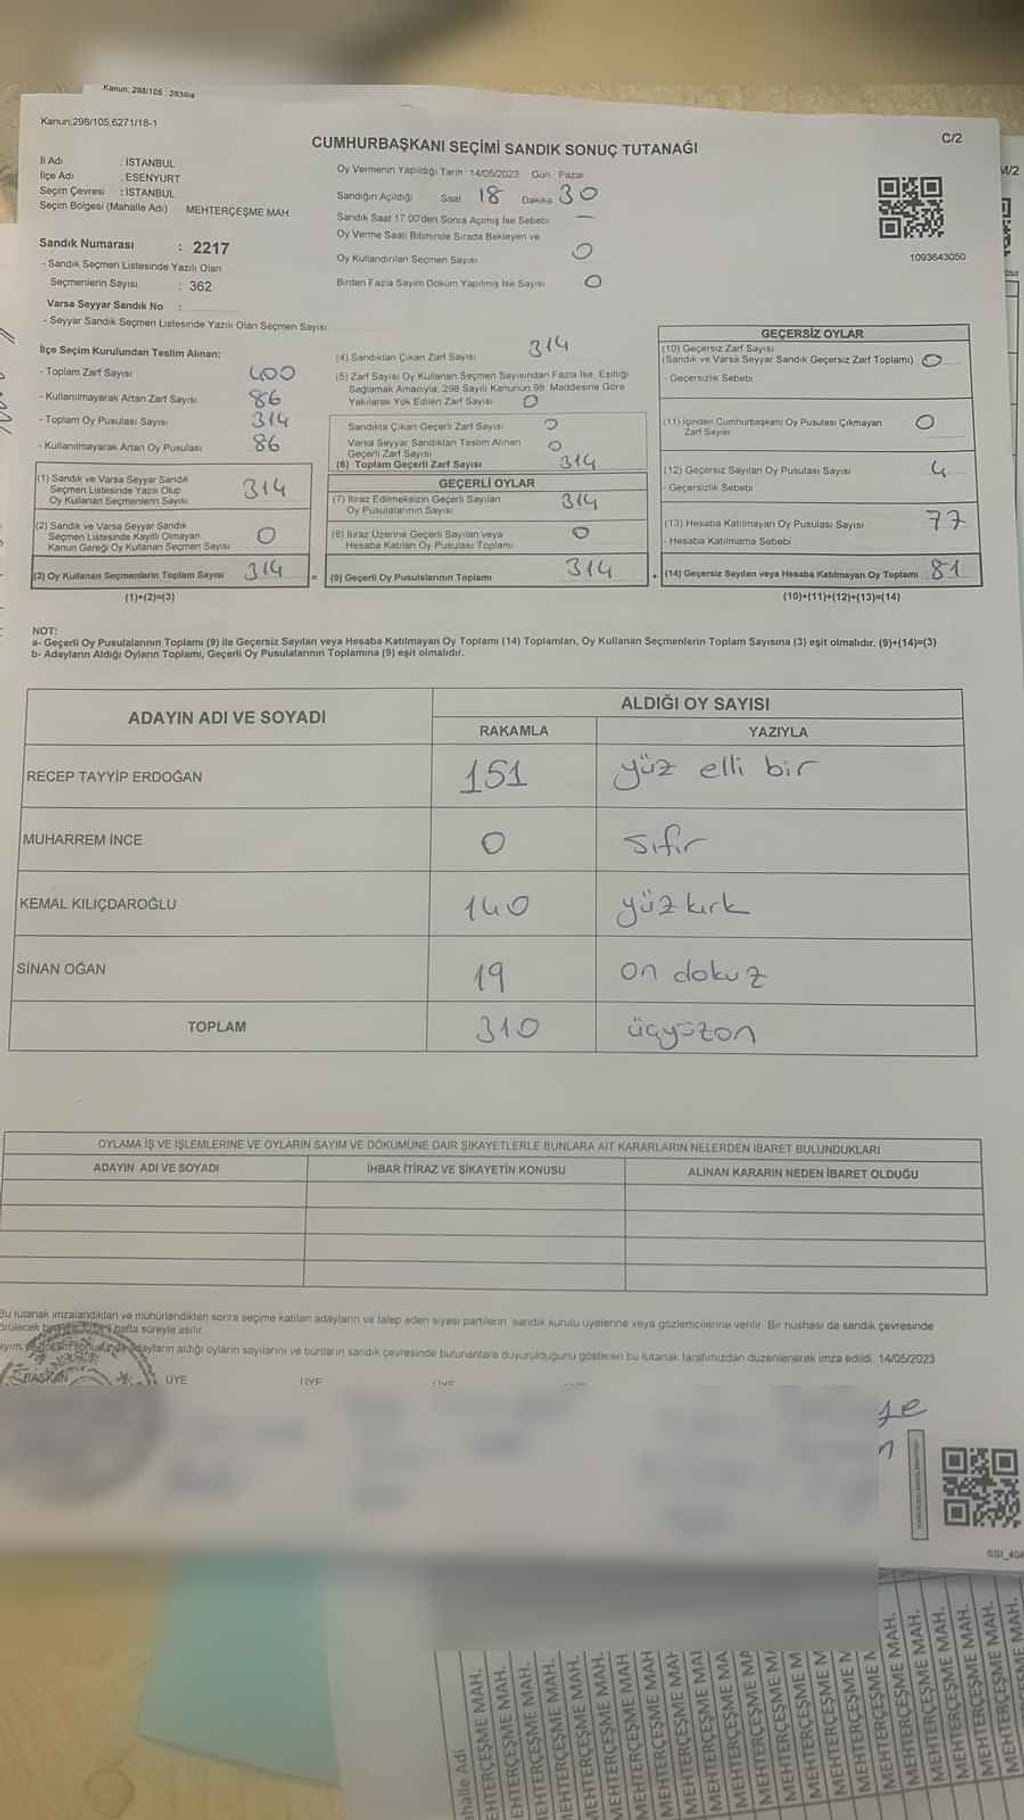 Kanun: 298/105
Kanun:298/105,6271/18-1
C/2
CUMHURBAŞKANI SEÇİMİ SANDIK SONUÇ TUTANAĞI
İl Adı : İSTANBUL
İlçe Adı : ESENYURT
Seçim Çevresi : İSTANBUL
Seçim Bölgesi (Mahalle Adı) MEHTERÇEŞME MAH.
Sandık Numarası : 2217
- Sandık Seçmen Listesinde Yazılı Olan
Seçmenlerin Sayısı : 362
Varsa Seyyar Sandık No :
- Seyyar Sandık Seçmen Listesinde Yazılı Olan Seçmen Sayısı
Oy Vermenin Yapıldığı Tarih 14/05/2023 Gün Pazar
Sandığın Açıldığı Saat 18 Dakika 30
Sandık Saat 17.00'den Sonra Açılmış İse Sebebi —
Oy Verme Saati Bitiminde Sırada Bekleyen ve
Oy Kullandırılan Seçmen Sayısı 0
Birden Fazla Sayım Döküm Yapılmış İse Sayısı 0
1093643050
M/2
İlçe Seçim Kurulundan Teslim Alınan:
- Toplam Zarf Sayısı 400
- Kullanılmayarak Artan Zarf Sayısı 86
- Toplam Oy Pusulası Sayısı 314
- Kullanılmayarak Artan Oy Pusulası 86
(1) Sandık ve Varsa Seyyar Sandık
Seçmen Listesinde Yazılı Olup
Oy Kullanan Seçmenlerin Sayısı 314
(2) Sandık ve Varsa Seyyar Sandık
Seçmen Listesinde Kayıtlı Olmayan
Kanun Gereği Oy Kullanan Seçmen Sayısı 0
(3) Oy Kullanan Seçmenlerin Toplam Sayısı 314
(1)+(2)=(3)
(4) Sandıktan Çıkan Zarf Sayısı 314
(5) Zarf Sayısı Oy Kullanan Seçmen Sayısından Fazla İse, Eşitliği
Sağlamak Amacıyla, 298 Sayılı Kanunun 98. Maddesine Göre
Yakılarak Yok Edilen Zarf Sayısı 0
Sandıkta Çıkan Geçerli Zarf Sayısı 0
Varsa Seyyar Sandıktan Teslim Alınan
Geçerli Zarf Sayısı 0
(6) Toplam Geçerli Zarf Sayısı 314
GEÇERLİ OYLAR
(7) İtiraz Edilmeksizin Geçerli Sayılan
Oy Pusulalarının Sayısı 314
(8) İtiraz Üzerine Geçerli Sayılan veya
Hesaba Katılan Oy Pusulası Toplamı 0
= (9) Geçerli Oy Pusulalarının Toplamı 314
GEÇERSİZ OYLAR
(10) Geçersiz Zarf Sayısı
(Sandık ve Varsa Seyyar Sandık Geçersiz Zarf Toplamı) 0
- Geçersizlik Sebebi
(11) İçinden Cumhurbaşkanı Oy Pusulası Çıkmayan
Zarf Sayısı 0
(12) Geçersiz Sayılan Oy Pusulası Sayısı 4
- Geçersizlik Sebebi
(13) Hesaba Katılmayan Oy Pusulası Sayısı 77
- Hesaba Katılmama Sebebi
+ (14) Geçersiz Sayılan veya Hesaba Katılmayan Oy Toplamı 81
(10)+(11)+(12)+(13)=(14)
NOT:
a- Geçerli Oy Pusulalarının Toplamı (9) ile Geçersiz Sayılan veya Hesaba Katılmayan Oy Toplamı (14) Toplamları, Oy Kullanan Seçmenlerin Toplam Sayısına (3) eşit olmalıdır. (9)+(14)=(3)
b- Adayların Aldığı Oyların Toplamı, Geçerli Oy Pusulalarının Toplamına (9) eşit olmalıdır.
ADAYIN ADI VE SOYADI
ALDIĞI OY SAYISI
RAKAMLA YAZIYLA
RECEP TAYYİP ERDOĞAN 151 yüz elli bir
MUHARREM İNCE 0 sıfır
KEMAL KILIÇDAROĞLU 140 yüzkırk
SİNAN OĞAN 19 on dokuz
TOPLAM 310 üçyüzon
OYLAMA İŞ VE İŞLEMLERİNE VE OYLARIN SAYIM VE DÖKÜMÜNE DAİR ŞİKAYETLERLE BUNLARA AİT KARARLARIN NELERDEN İBARET BULUNDUKLARI
ADAYIN ADI VE SOYADI İHBAR İTİRAZ VE ŞİKAYETİN KONUSU ALINAN KARARIN NEDEN İBARET OLDUĞU
Bu tutanak imzalandıktan ve mühürlendikten sonra seçime katılan adayların ve talep eden siyasi partilerin, sandık kurulu üyelerine veya gözlemcilerine verilir. Bir nüshası da sandık çevresinde
hafta süreyle asılır.
adayların aldığı oyların sayılarını ve bunların sandık çevresinde bulunanlara duyurulduğunu gösteren bu tutanak tarafımızdan düzenlenerek imza edildi. 14/05/2023
BAŞKAN ÜYE ÜYE ÜYE
Mahalle Adı
MEHTERÇEŞME MAH.
MEHTERÇEŞME MAH.
MEHTERÇEŞME MAH.
MEHTERÇEŞME MAH.
MEHTERÇEŞME MAH.
MEHTERÇEŞME MAH.
MEHTERÇEŞME MAH
MEHTERÇEŞME MAH
MEHTERÇEŞME MAH
MEHTERÇEŞME MA
MEHTERÇEŞME MA
MEHTERÇEŞME MA
MEHTERÇEŞME M
MEHTERÇEŞME M
MEHTERÇEŞME M
MEHTERÇEŞME MAH.
MEHTERÇEŞME MAH.
MEHTERÇEŞME MAH.
MEHTERÇEŞME MAH.
MEHTERÇEŞME MAH.
MEHTERÇEŞME MAH.